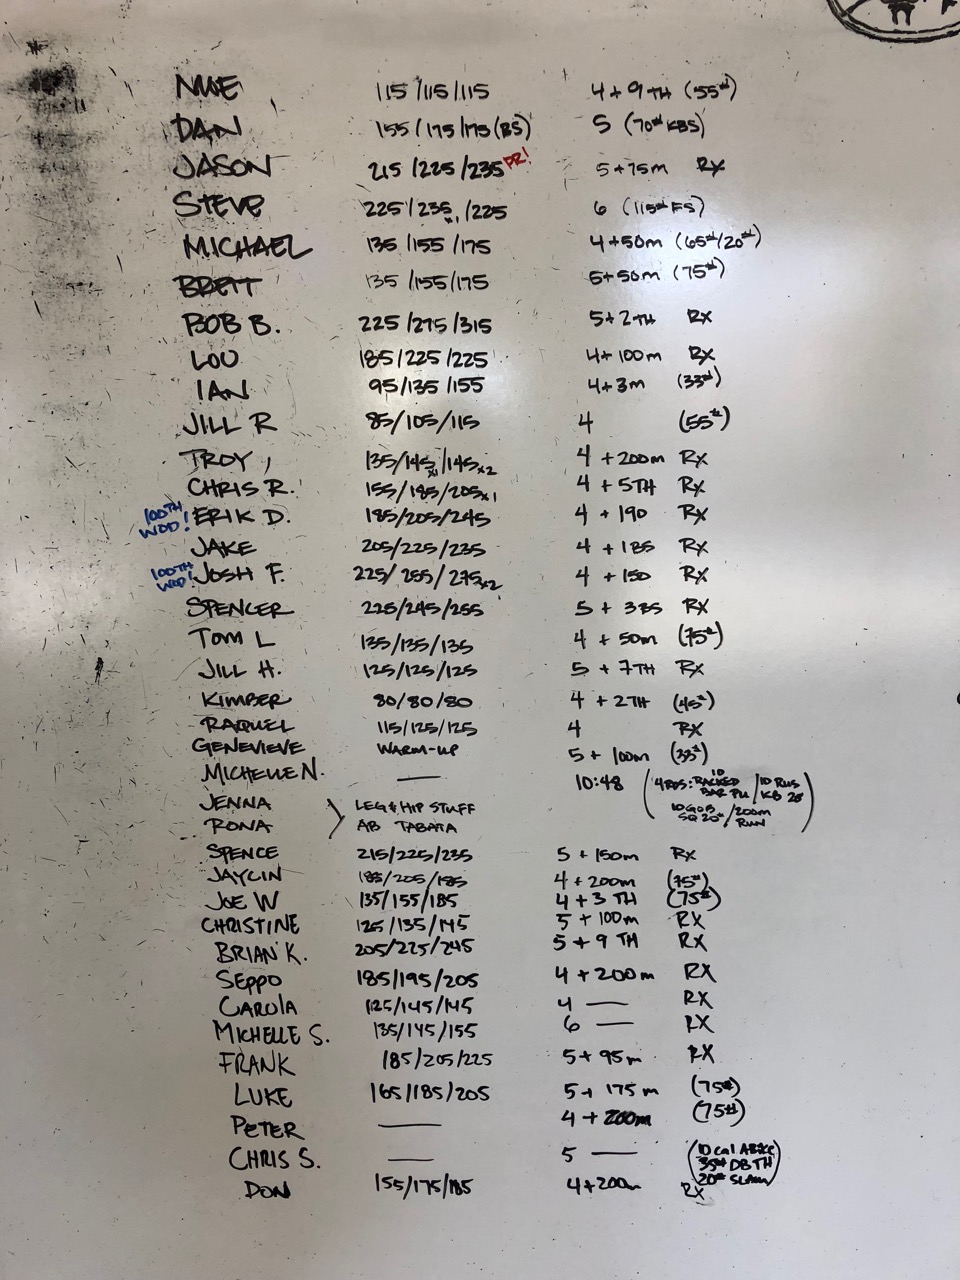 NICOLE 115/115/115 4+9TH (55#)
DAN 155/175/175(BS) 5 (70# KBS)
JASON 215/225/235 PR! 5+75m RX
STEVE 225/235x1/225 6 (115# FS)
MICHAEL 135/155/175 4+50m (65#/20#)
BRETT 135/155/175 5+50m (75#)
BOB B. 225/275/315 5+2TH RX
LOU 185/225/225 4+100m RX
IAN 95/135/155 4+3m (33#)
JILL R 85/105/115 4 (55#)
TROY 135/145x1/145x2 4+200m RX
CHRIS R. 155/185/205x1 4+5TH RX
100TH WOD! ERIK D. 185/205/245 4+190 RX
JAKE 205/225/235 4+185 RX
100TH WOD! JOSH F. 225/255/275x2 4+150 RX
SPENCER 225/245/255 5+3BS RX
TOM L 135/135/135 4+50m (75#)
JILL H. 125/125/125 5+7TH RX
KIMBER 80/80/80 4+2TH (45#)
RAQUEL 115/125/125 4 RX
GENEVIEVE WARM-UP 5+100m (33#)
MICHELLE N. — 10:48 (4 RDS: 10 RACKED BAR PU/10 RUS KB 28
10 GOB SQ 20#/200m RUN)
JENNA LEG & HIP STUFF
RONA AB TABATA
SPENCE 215/225/235 5+150m RX
JAYLIN 185/205/185 4+200m (75#)
JOE W 135/155/185 4+3TH (75#)
CHRISTINE 125/135/145 5+100m RX
BRIAN K. 205/225/245 5+9TH RX
SEPPO 185/195/205 4+200m RX
CAROLA 125/145/145 4 — RX
MICHELLE S. 135/145/155 6 — RX
FRANK 185/205/225 5+95m RX
LUKE 165/185/205 5+175m (75#)
PETER — 4+200m (75#)
CHRIS S. — 5 — (10 Cal ABIKE
35# DB TH
20# SLAM)
DON 155/175/185 4+200m RX